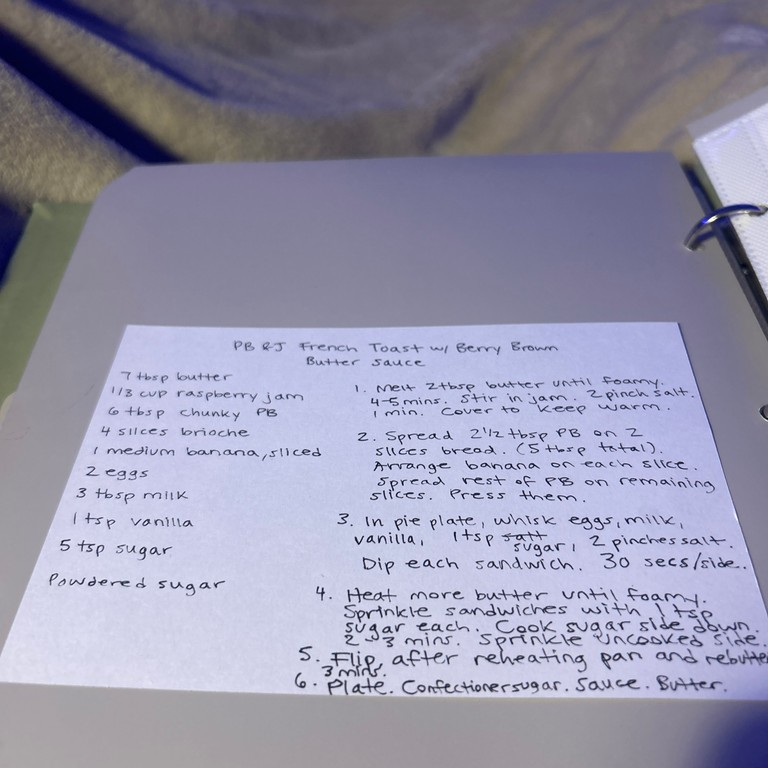 PB & J French Toast w/ Berry Brown
Butter Sauce
7 tbsp butter
1/3 cup raspberry jam
6 tbsp chunky PB
4 slices brioche
1 medium banana, sliced
2 eggs
3 tbsp milk
1 tsp vanilla
5 tsp sugar
Powdered sugar
1. Melt 2 tbsp butter until foamy.
4-5 mins. Stir in jam. 2 pinch salt.
1 min. Cover to keep warm.
2. Spread 2 1/2 tbsp PB on 2
slices bread. (5 tbsp total).
Arrange banana on each slice.
Spread rest of PB on remaining
slices. Press them.
3. In pie plate, whisk eggs, milk,
vanilla, 1 tsp salt sugar, 2 pinches salt.
Dip each sandwich. 30 secs/side.
4. Heat more butter until foamy.
Sprinkle sandwiches with 1 tsp
sugar each. Cook sugar side down.
2-3 mins. Sprinkle uncooked side.
5. Flip, after reheating pan and rebutte
3 mins.
6. Plate. Confectioner sugar. Sauce. Butter.